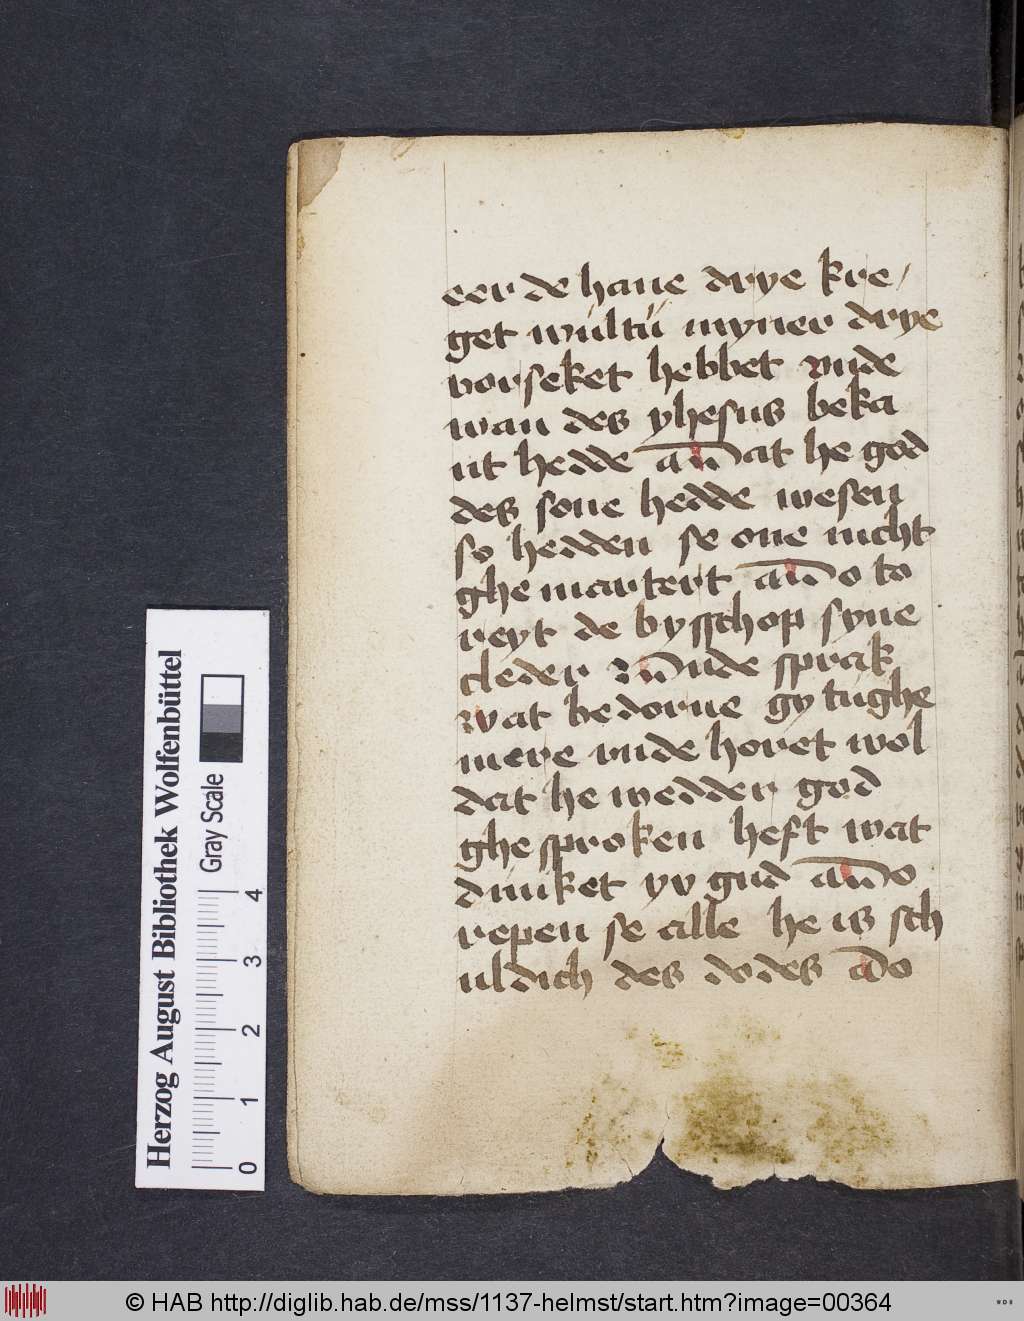 eer de hane drye kre/
get wultu myner drye
vorseket hebbet vnde
wan des yhesus beka
nt hedde do dat he god
des sone hedde wesen
so hedden se one nicht
ghe martert Do to
reyt de bysschop syne
cleder vnde sprak
wat bedorue gy tughe
mere vnde horet wol
dat he wedder god
ghe sproken heft wat
dunket yv gud Do
repen se alle he is sch
uldich des dodes Do
Herzog August Bibliothek Wolfenbüttel
Gray Scale
0 1 2 3 4
© HAB http://diglib.hab.de/mss/1137-helmst/start.htm?image=00364